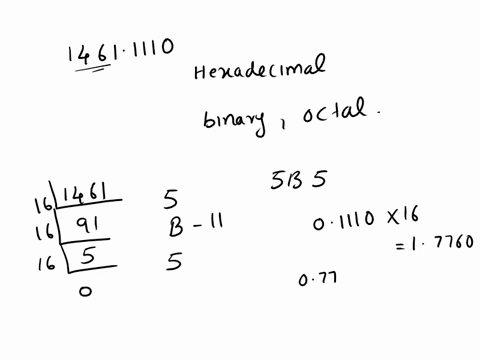 1461.1110
Hexadecimal
binary, octal.
16 1461 5
16 91 B - 11
16 5 5
0
5B 5
0.1110 X 16
= 1.7760
0.77